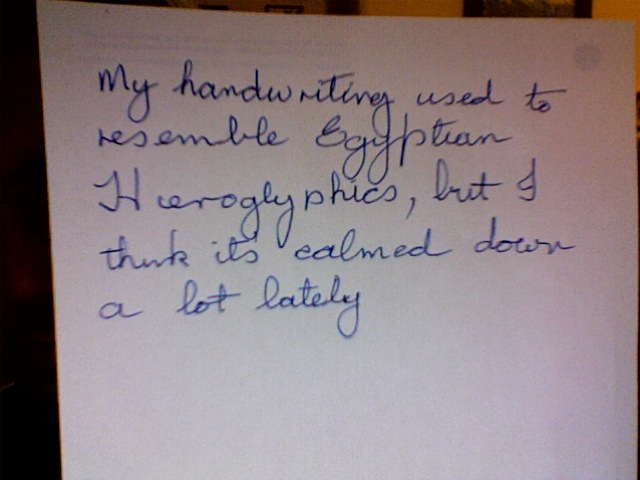 My handwriting used to
resemble Egyptian
Hieroglyphics, but I
think it's calmed down
a lot lately